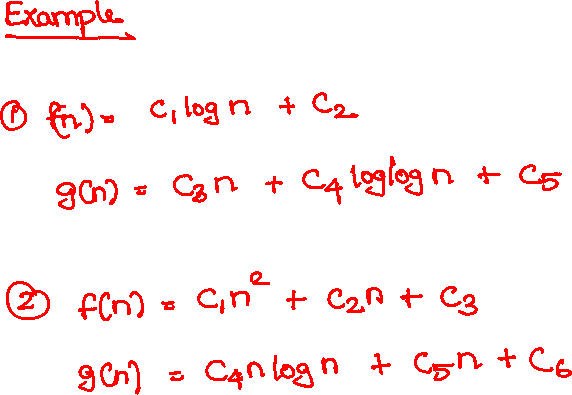 Example
① f(n) = C₁ log n + C₂
g(n) = C₃n + C₄ loglog n + C₅
② f(n) = C₁n² + C₂n + C₃
g(n) = C₄n log n + C₅n + C₆